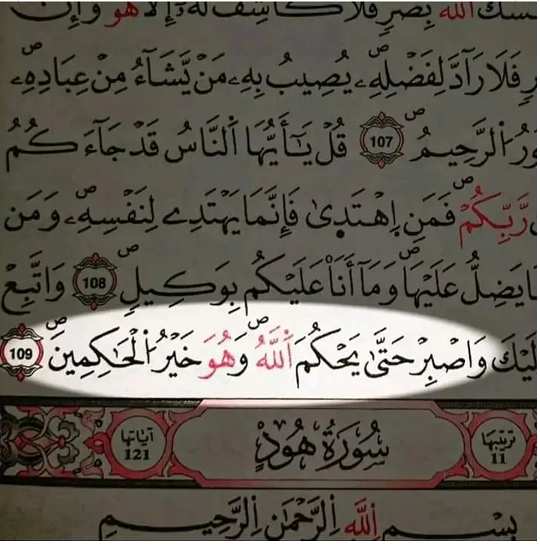 الله بِضُرٍّ فَلَا كَاشِفَ لَهُۥٓ إِلَّا هُوَ وَإِنْ
فَلَا رَآدَّ لِفَضْلِهِۦ يُصِيبُ بِهِۦ مَنْ يَّشَآءُ مِنْ عِبَادِهِۦ
اُ۬لرَّحِيمُ 107 قُلْ يَٰٓأَيُّهَا اَ۬لنَّاسُ قَدْ جَآءَكُمُ
رَّبِّكُمْ فَمَنِ اِ۪هْتَدَىٰ فَإِنَّمَا يَهْتَدِے لِنَفْسِهِۦ وَمَن
يَضِلُّ عَلَيْهَا وَمَآ أَنَا۠ عَلَيْكُم بِوَكِيلٍ 108 وَاتَّبِعْ
وَاصْبِرْ حَتَّىٰ يَحْكُمَ اَ۬للَّهُ وَهُوَ خَيْرُ اُ۬لْحَٰكِمِينَ 109
ترتيبها 11 سُورَةُ هُودٍ آياتها 121
بِسْمِ اِ۬للَّهِ اِ۬لرَّحْمَٰنِ اِ۬لرَّحِيمِ